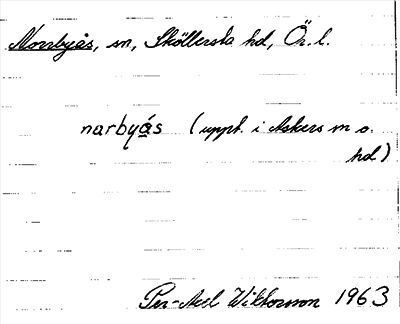 Norrbyås, sn, Sköllersta hd, Ör. l.
narbyås (uppt. i Askers sn o.
hd)
Per-Axel Wiktorsson 1963